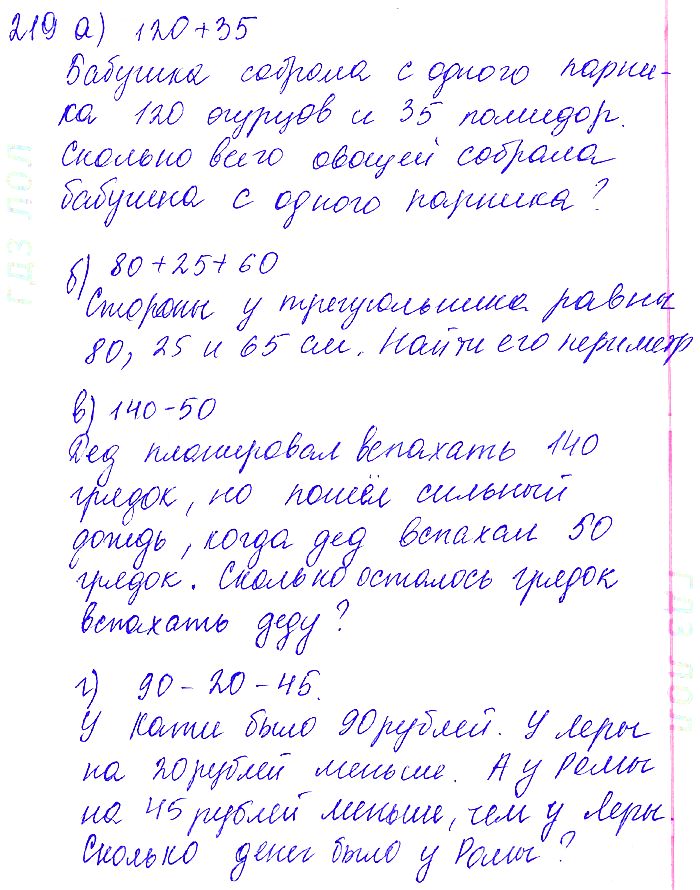 219 а) 120+35
Бабушка собрала с одного парни-
ка 120 огурцов и 35 помидор.
Сколько всего овощей собрала
бабушка с одного парника?
б) 80+25+60
Стороны у треугольника равны
80, 25 и 65 см. Найти его периметр
в) 140-50
Дед планировал вспахать 140
грядок, но пошёл сильный
дождь, когда дед вспахал 50
грядок. Сколько осталось грядок
вспахать деду?
г) 90-20-45.
У Кати было 90 рублей. У Леры
на 20 рублей меньше. А у Ромы
на 45 рублей меньше, чем у Леры.
Сколько денег было у Ромы?
гдз лол
гдз лол